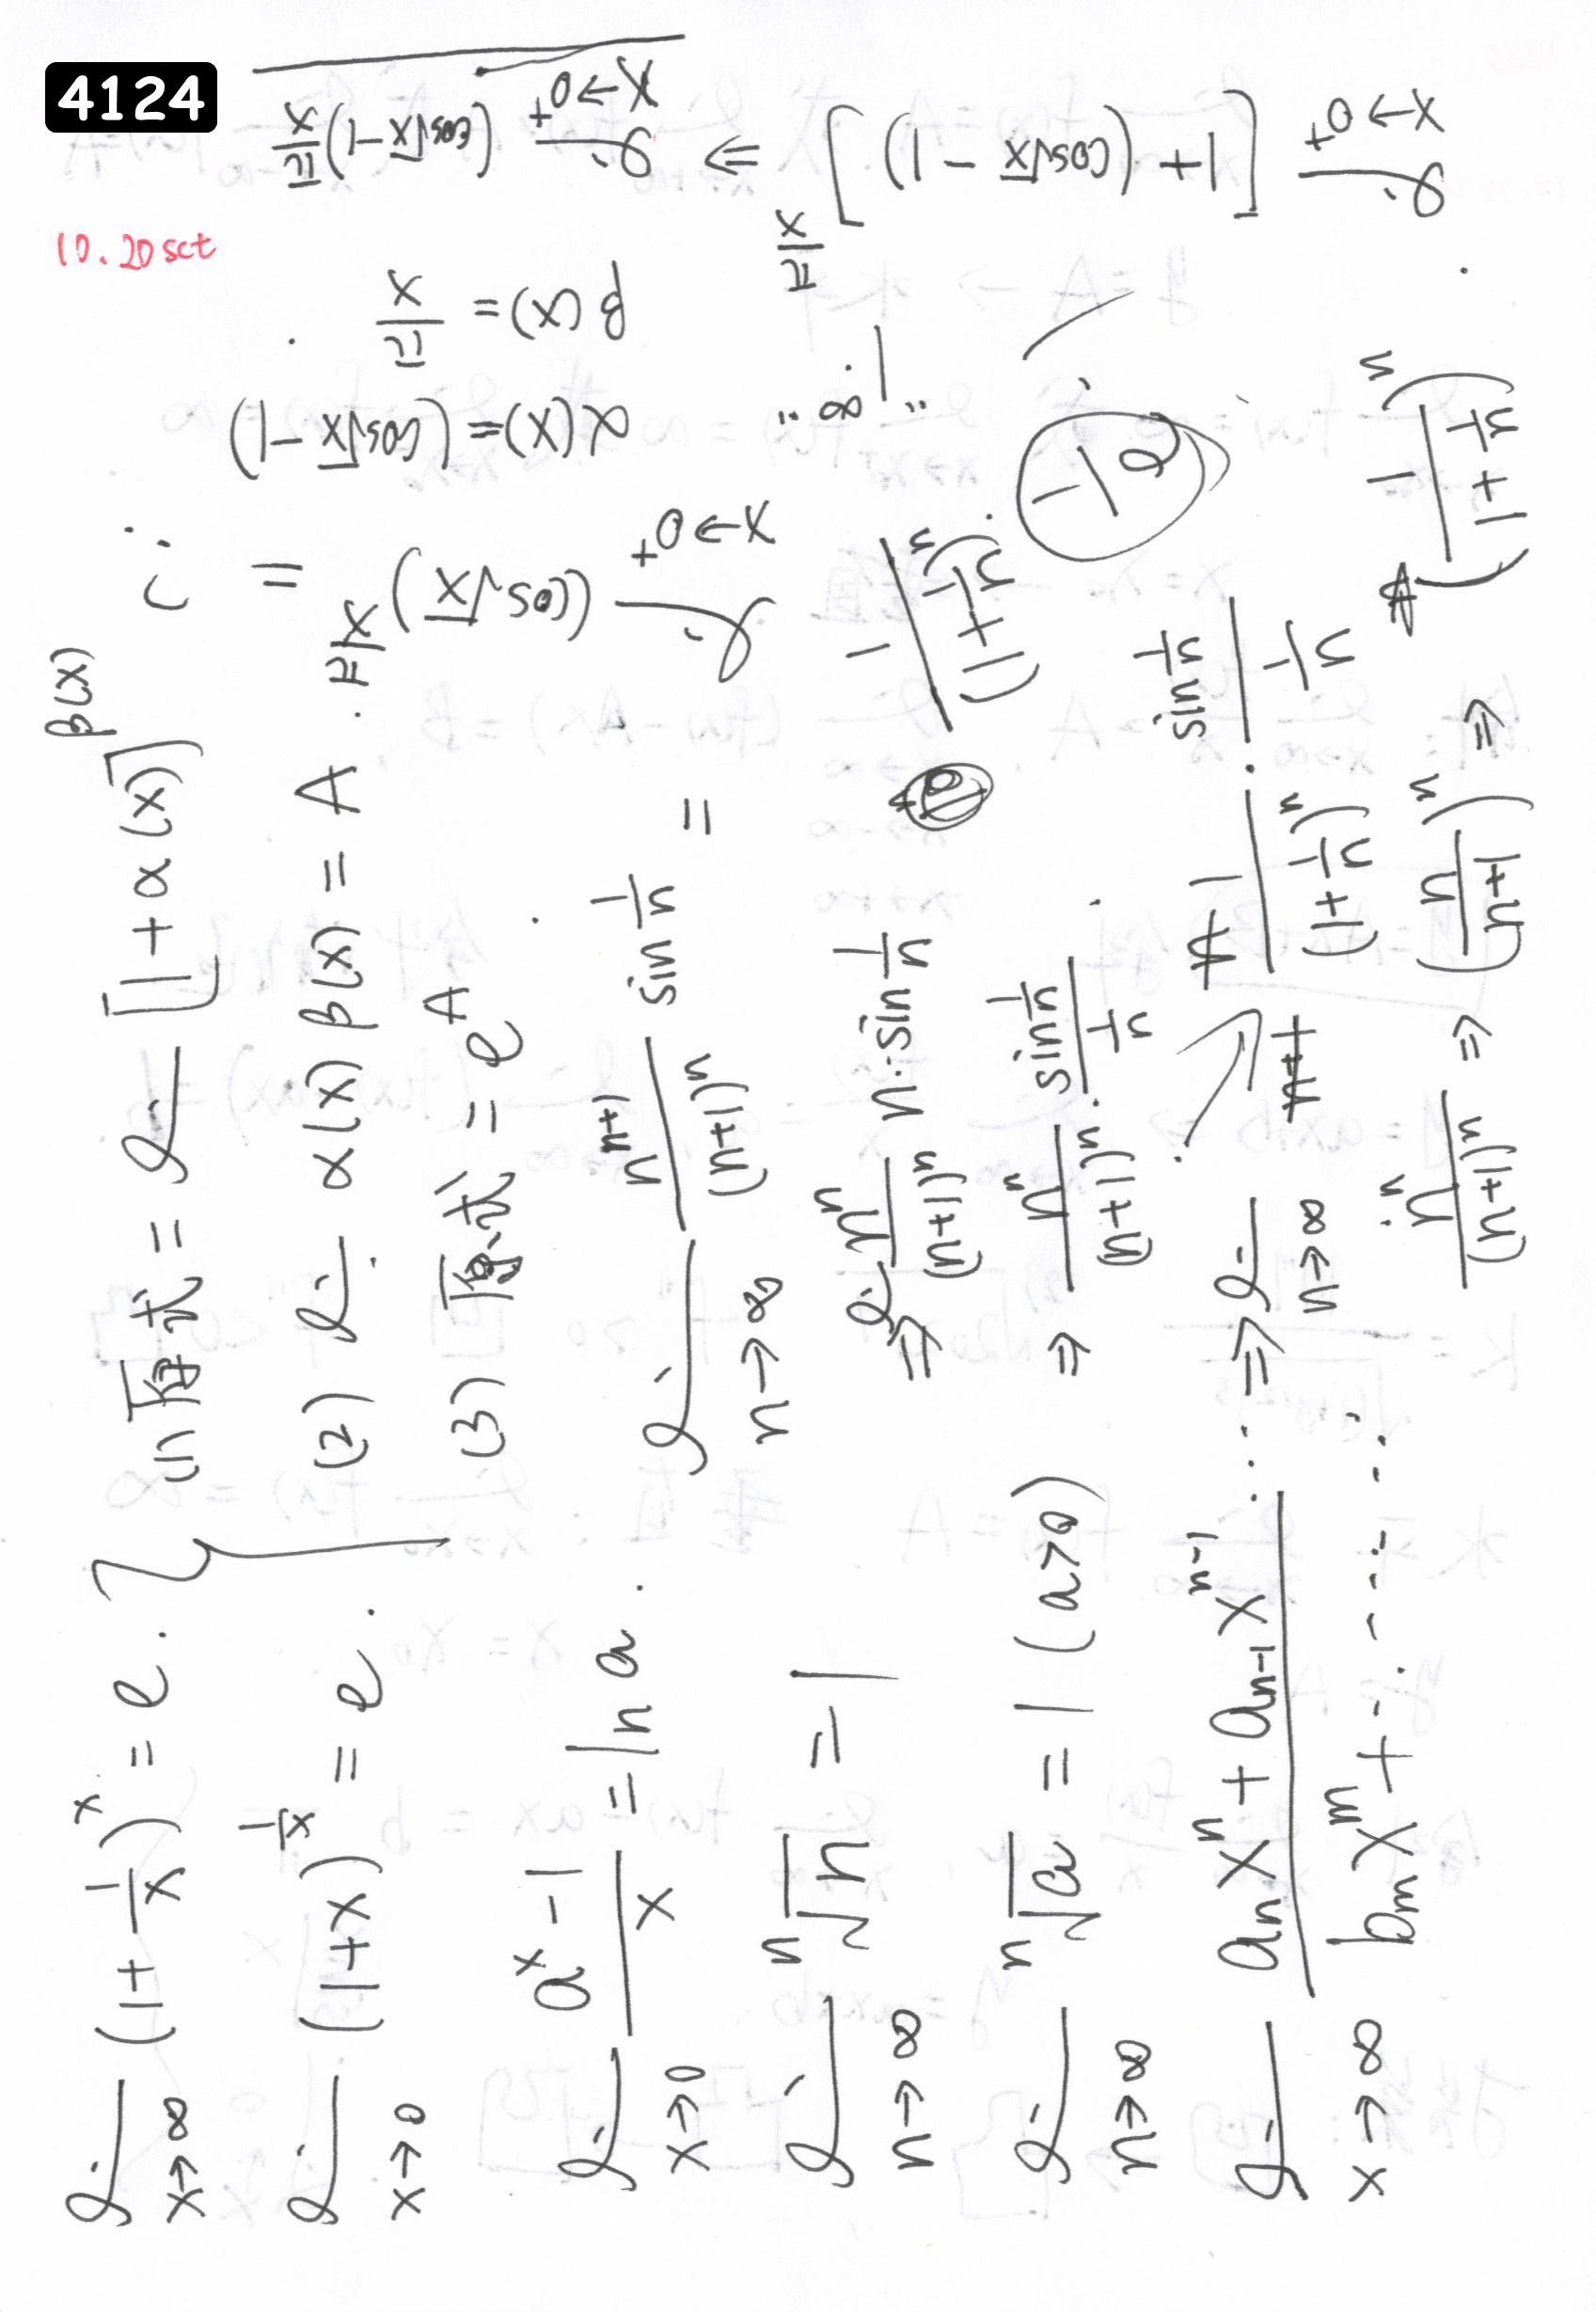 4124
10.20 sct
lim x→∞ (1+1/x)^x = e.
lim x→0 (1+x)^(1/x) = e.
lim x→0 (a^x-1)/x = ln a.
lim n→∞ ⁿ√n = 1
lim n→∞ ⁿ√a = 1 (a>0)
lim x→∞ (aₙxⁿ + aₙ₋₁xⁿ⁻¹ ...)/(bₘxᵐ + ......)
(1) 原式 = lim [1+α(x)]^β(x)
(2) lim α(x)β(x) = A.
(3) 原式 = e^A
lim n→∞ n^(n+1)/(n+1)^n sin 1/n =
⇒ lim n^n/(n+1)^n n·sin 1/n
⇒ n^n/(n+1)^n · (sin 1/n)/(1/n)
⇒ lim n→∞ 1/(1+1/n)^n · (sin 1/n)/(1/n)
n^n/(n+1)^n ⇒ (n/(n+1))^n ⇒ (1/(1+1/n))^n
1/(1+1/n)^n
1/e
lim x→0⁺ (cos√x)^(π/x) =
"1^∞"
lim x→0⁺ [1+(cos√x - 1)]^(π/x) ⇒ lim x→0⁺ (cos√x-1) π/x
α(x) = (cos√x - 1)
β(x) = π/x